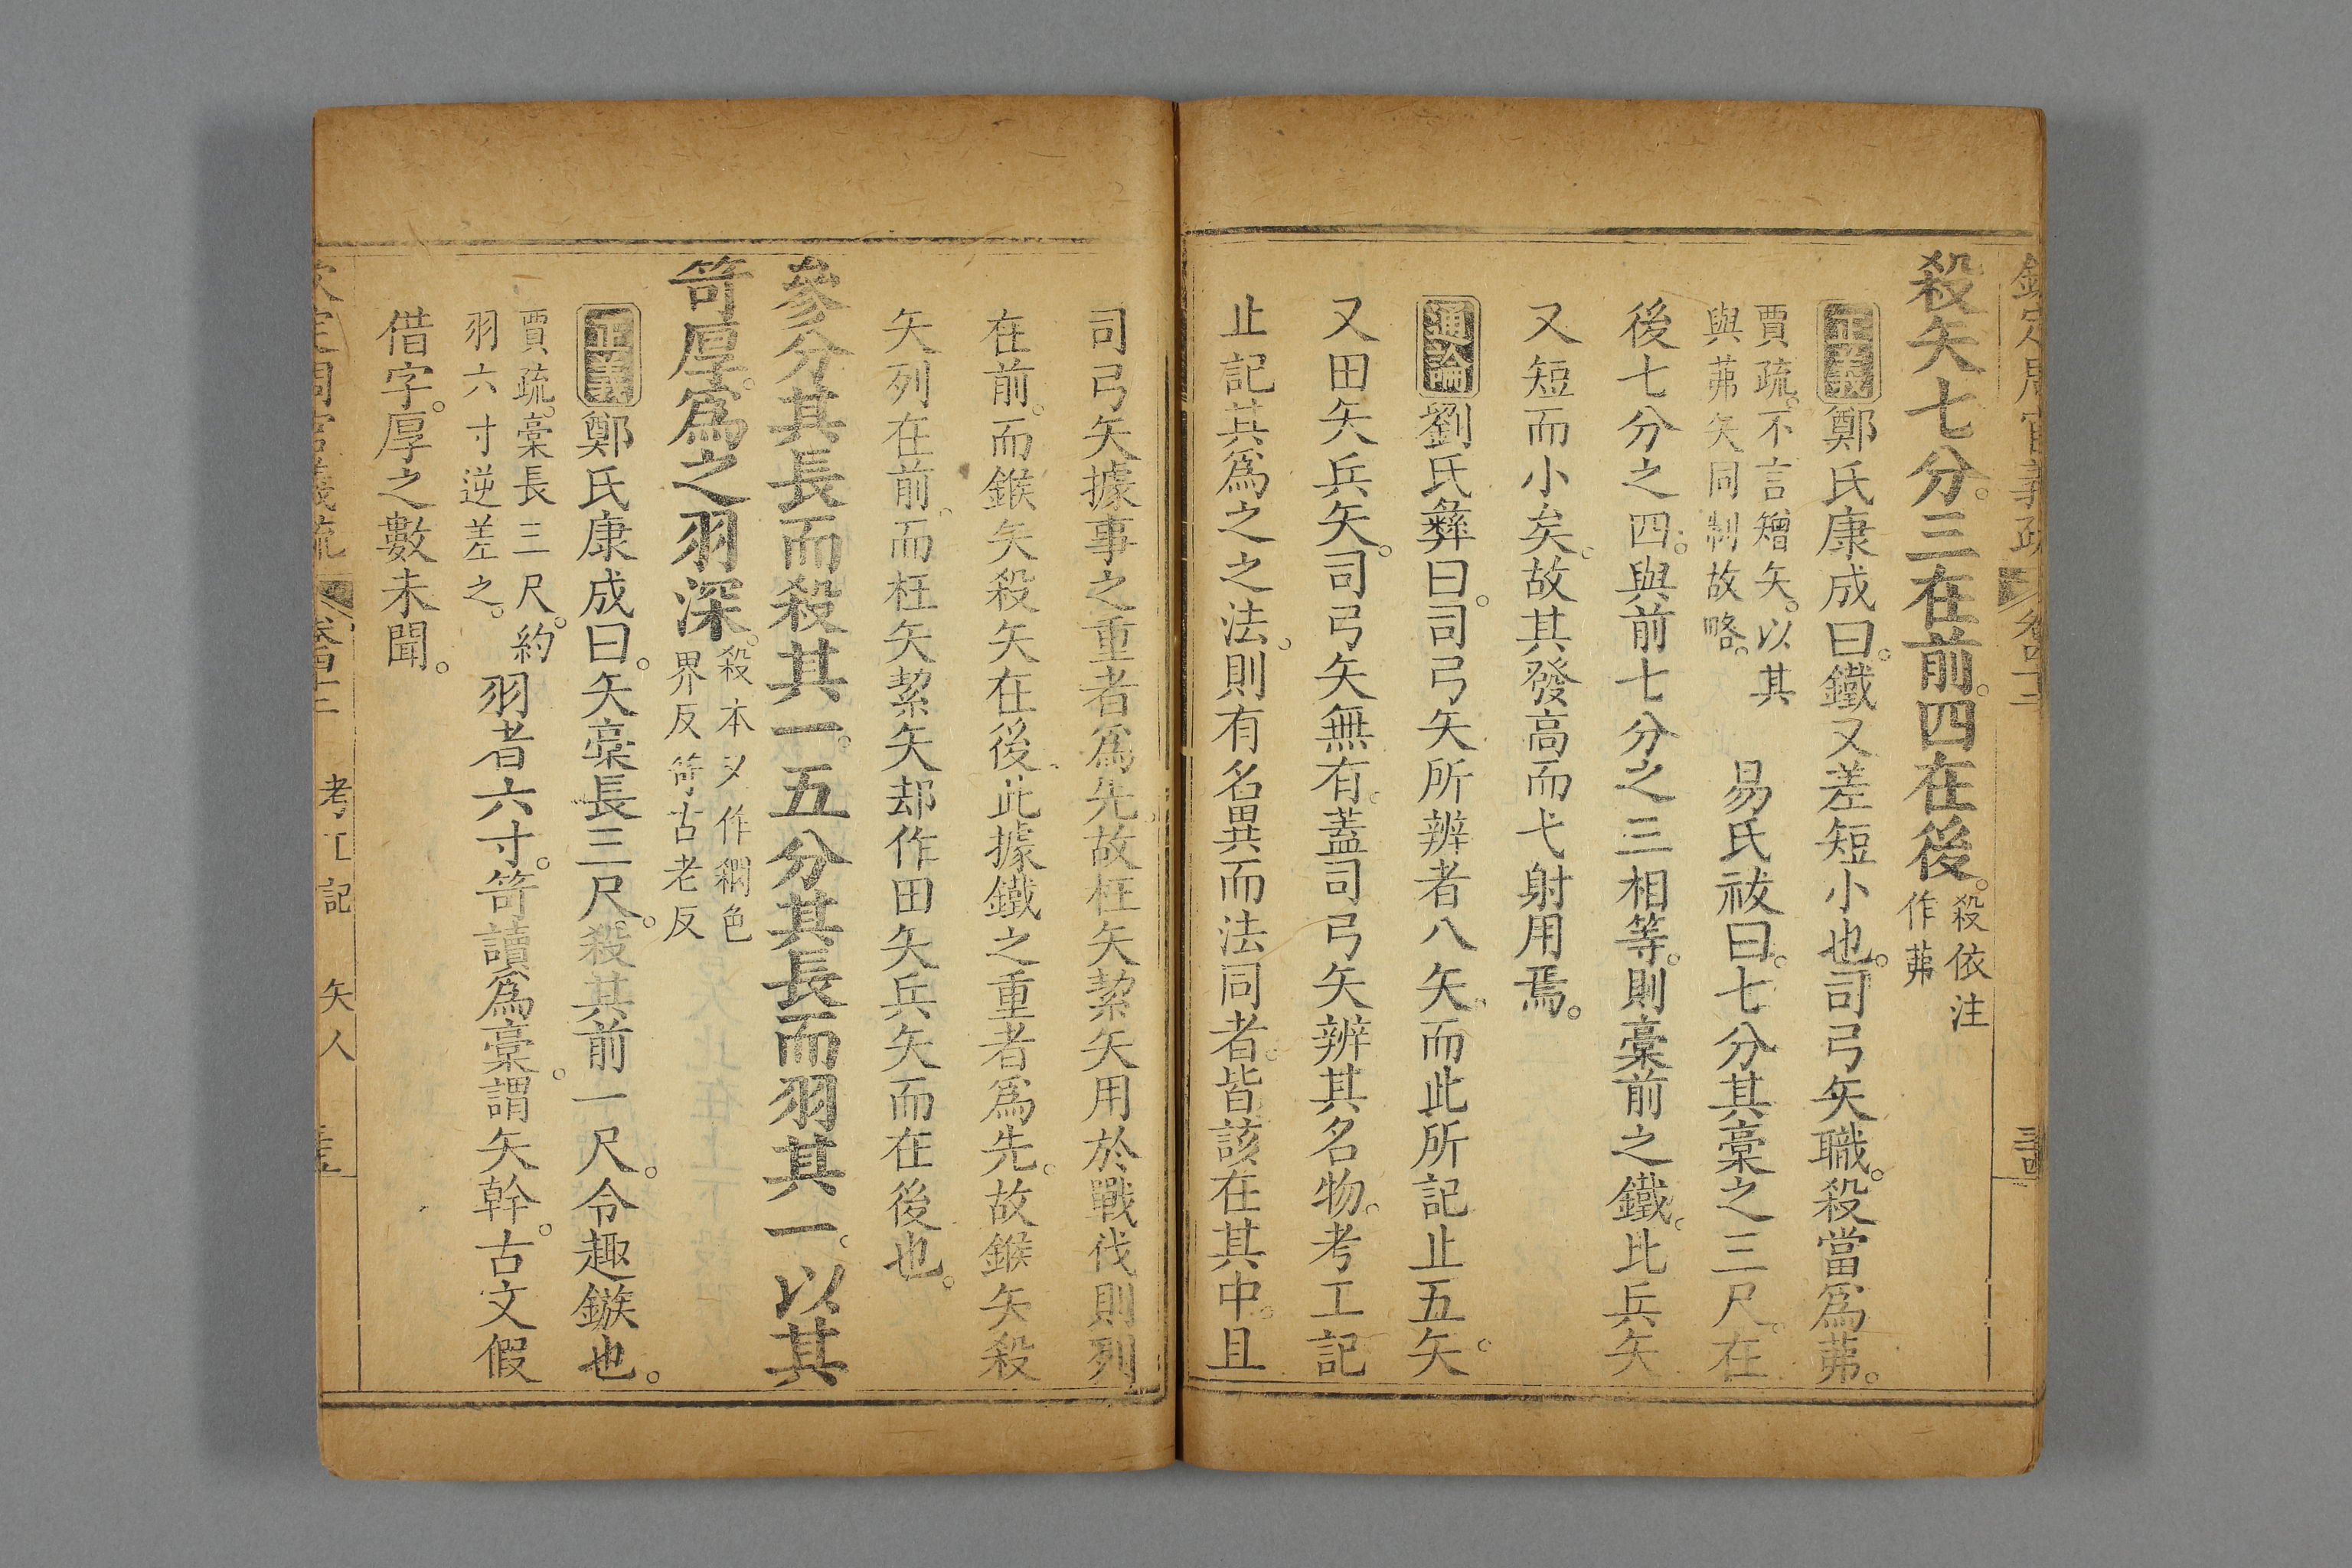 欽定周官義疏 卷四十三
殺矢七分。三在前。四在後。殺依注作茀
正義鄭氏康成曰。鐵又差短小也。司弓矢職。殺當爲茀。
賈疏。不言矰矢。以其與茀矢同制故略。易氏祓曰。七分其稾之三尺。在
後七分之四。與前七分之三相等。則稾前之鐵。比兵矢
又短而小矣。故其發高而弋射用焉。
通論劉氏彝曰。司弓矢所辨者八矢。而此所記止五矢。
又田矢兵矢。司弓矢無有。蓋司弓矢辨其名物。考工記
止記其爲之之法。則有名異而法同者。皆該在其中。且
司弓矢據事之重者爲先。故枉矢絜矢用於戰伐則列
在前。而鍭矢殺矢在後。此據鐵之重者爲先。故鍭矢殺
矢列在前。而枉矢絜矢却作田矢兵矢而在後也。
參分其長而殺其一。五分其長而羽其一。以其
笴厚。爲之羽深。殺本又作䌤色界反笴古老反
正義鄭氏康成曰。矢稾長三尺。殺其前一尺。令趣鏃也。
賈疏。稾長三尺。約羽六寸逆差之。羽者六寸。笴讀爲稾。謂矢幹。古文假
借字。厚之數未聞。
欽定周官義疏 卷四十三 考工記 矢人